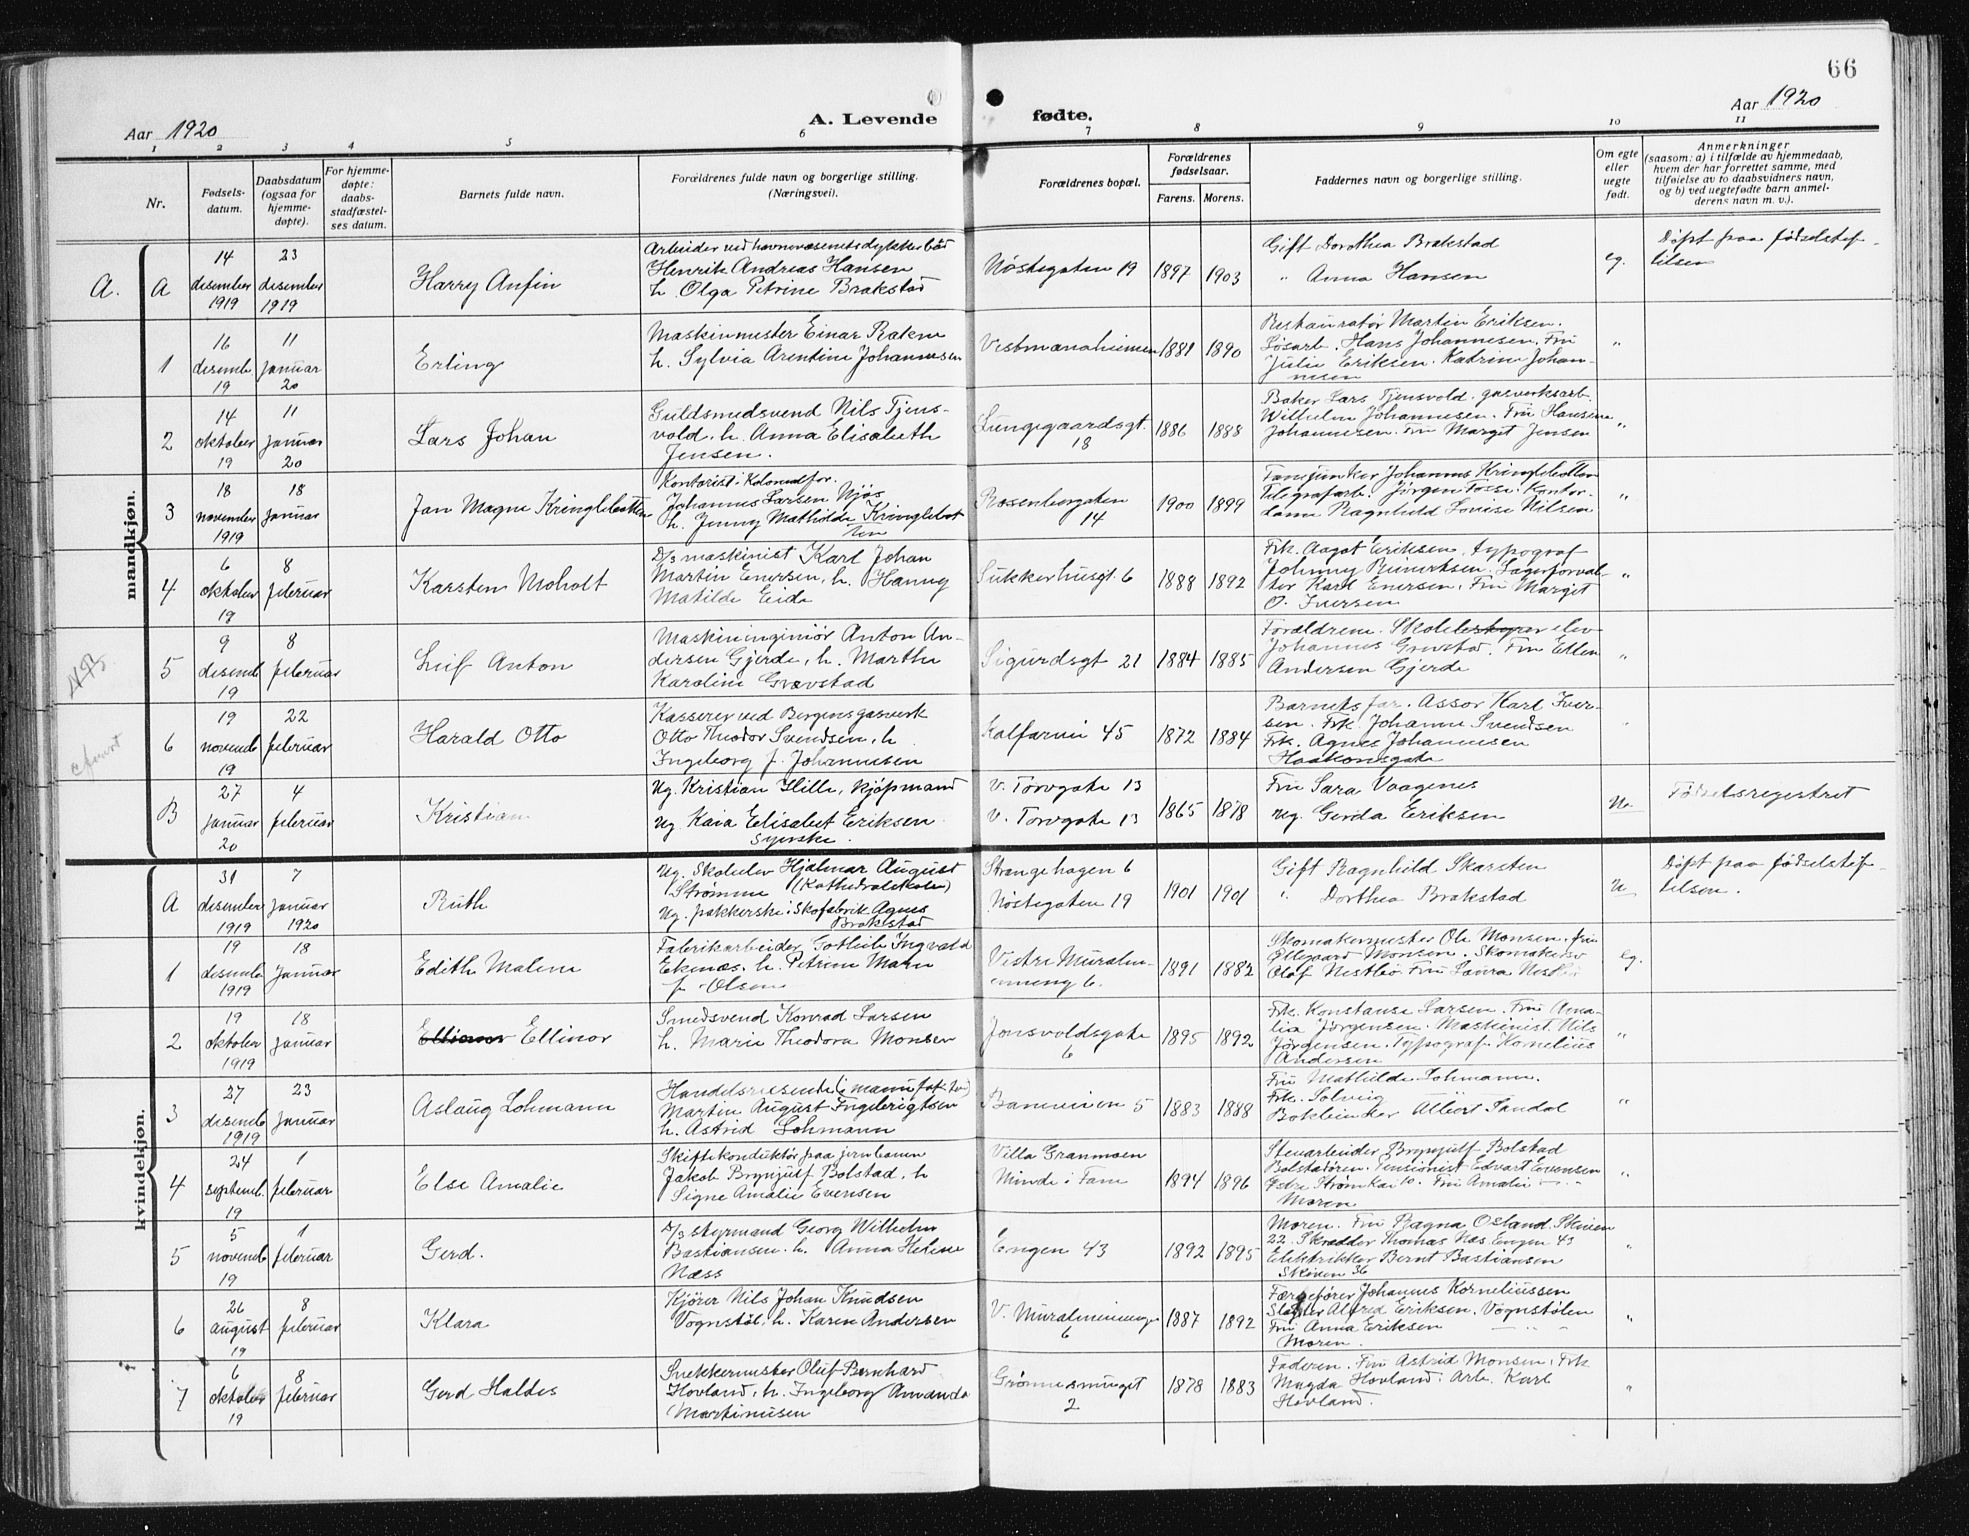 66
Aar 1920
A. Levende fødte.
Aar 1920
1 2 3 4 5 6 7 8 9 10 11
Nr.
Fødsels-
datum.
Daabsdatum
(ogsaa for
hjemme-
døpte).
For hjemme-
døpte:
daabs-
stadfæstel-
ses datum.
Barnets fulde navn.
Forældrenes fulde navn og borgerlige stilling.
(Næringsvei).
Forældrenes bopæl.
Forældrenes
fødselsaar.
Farens. Morens.
Faddernes navn og borgerlige stilling.
Om egte
eller
uegte
født.
Anmerkninger
(saasom: a) i tilfælde av hjemmedaab,
hvem der har forrettet samme, med
tilføielse av to daabsvidners navn,
og b) ved uegtefødte barn anmel-
derens navn m. v.).
mandkjøn.
A. A
14
desember
1919
23
desember
1919
Harry Anfin
Arbeider ved havnevæsenets
Henrik Andreas Hansen
h. Olga Petrine Brakstad
Nøstegaten 19
1897
1903
Gift Dorothea Brakstad
" Anna Hansen
eg.
Døpt paa fødselsstif-
telsen
1
16
desemb.
19
11
januar
20
Erling
Maskinmester Einar Rakne
h. Sylvia Arentine Johannesen
Vestmannaheimen
1881
1890
Restauratør Martin Eriksen.
Løsarb. Hans Johannesen. Fru
Julie Eriksen. Katrine Johan-
nesen
"
2
14
oktober
19
11
januar
20
Lars Johan
Guldsmedsvend Nils Tjens-
vold. h. Anna Elisabeth
Jensen.
Lungegaardsgt.
18
1886
1888
Baker Lars Tjensvold. gasverksarb.
Wilhelm Johannesen. Fru Hansine
Johannesen. Fru Marget Jensen
"
3
18
november
1919
18
januar
Jan Magne Kringlebotten
Kontorist i Kolonialfor.
Johannes Larsen Njøs
h. Jenny Mathilde Kringlebot
ten
Rosenbergaten
14
1900
1899
Johannes Kringlebotten
Telegrafarb. Jørgen Fosse. Kontor-
dame Ragnhild Louise Nilsen
"
4
6
oktober
19
8
februar
Karsten Moholt
D/S maskinist Karl Johan
Martin Enersen, h. Hanny
Matilde Eide
Sukkerhusgt. 6
1888
1892
Frk. Aagot Eriksen, typograf
Johnny Reinertsen. Lagerforval-
ter Karl Enersen. Fru Marget
O. Iversen
"
NB.
5
9
desemb
19
8
februar
Leif Anton
Maskiningeniør Anton An-
dersen Gjerde, h. Martha
Karoline Gravstad
Sigurdsgt 21
1884
1885
Forældrene. elev
Johannes Gravstad. Fru Ellen
Andersen Gjerde
"
6
19
novemb
19
22
februar
Harald Otto
Kasserer ved Bergens gasverk
Otto Theodor Svendsen, h.
Ingeborg f. Johannesen
Kalfarvei 45
1872
1884
Barnets far. Assor Karl Iver-
sen. Frk. Johanne Svendsen
Frk. Agnes Johannesen
Haakonsgate
"
B
27
januar
20
4
februar
Kristian
Ug. Kristian Hille, kjøpmand
Ug Kaia Elisabet Eriksen
syerske.
V. Torvgate 13
V. Torvgate 13
1865
1878
Fru Sara Vaagenes
Ug. Gerda Eriksen
Ue
Fødselsregistret
kvindekjøn.
A
31
desember
1919
7
januar
1920
Ruth
Ug. Skoleelev Hjalmar August
Strømme (Kathedralskolen)
Ug. pakkerske i Skofabrik Agnes
Brakstad
Strangehagen 6
Nøstegaten 19
1901
1901
Gift Ragnhild Skarsten
" Dorthea Brakstad
U
Døpt paa fødselsstif-
telsen.
1
19
desemb.
1919
18
januar
Edith Malene
Fabrikarbeider Gotlieb Ingvald
Ekenæs. h. Petrine Marie
f. Olsen
Vestre Muralm-
enning 6.
1891
1882
Skomakermester Ole Monsen. fru
Monsen. Skomakersv
Olaf Nestbø. Fru Laura Nestbø
eg.
2
19
oktober
1919
18
januar
Ellinor
Smedsvend Konrad Larsen
h. Marie Theodora Monsen
Jonsvoldsgate
6
1895
1892
Frk. Konstanse Larsen. Fru Ama-
lia Jørgensen. Maskinist. Nils
Jørgensen. Typograf Kornelius
Andersen
"
3
27
desemb
1919
23
januar
Aslaug Lohmann
Handelsreisende
Martin August Ingebrigtsen
h. Astrid Lohmann
Baneveien 5
1883
1888
Fru Mathilde Lohmann.
Frk. Solveig
Bokbinder Albert Sandal
"
4
24
septemb.
19
1
februar
Else Amalie
Skiftekonduktør paa jernbanen
Jakob Brynjulf Bolstad. h
Signe Amalie Evensen
Villa Granmoen
Minde i Fane
1894
1896
Stenarbeider Brynjulf Bolstad
Bolstadøren. Pensionist Edvart Evensen
Strømkai 10. Fru Amalie — " -
Moren
"
5
5
novemb
19
1
februar
Gerd.
D/S styrmand Georg Wilhelm
Bastiansen. h. Anna Helene
Næss
Engen 43
1892
1895
Moren. Fru Ragna Osland. Skiven
22. Skrædder Thomas Næs. Engen 43
Elektrikker Bernt Bastiansen
Skiven 36
"
6
26
august
19
8
februar
Klara
Kjører Nils Johan Knudsen
Vognstøl. h. Karen Andersen
V. Muralmenninge
6
1887
1892
Færgefører Johannes Korneliussen
Alfred Eriksen. Vognstølen
Fru Anna Eriksen — " -
Moren.
"
7
6
oktober
19
8
februar
Gerd Haldis
Snekkermester Oluf Bernhard
Hovland, h. Ingeborg Amanda
Martinusen
Grønnesmuget
2
1878
1883
Faderen. Fru Astrid Monsen. Frk
Magda Hovland. Arb. Karl
Hovland.
"